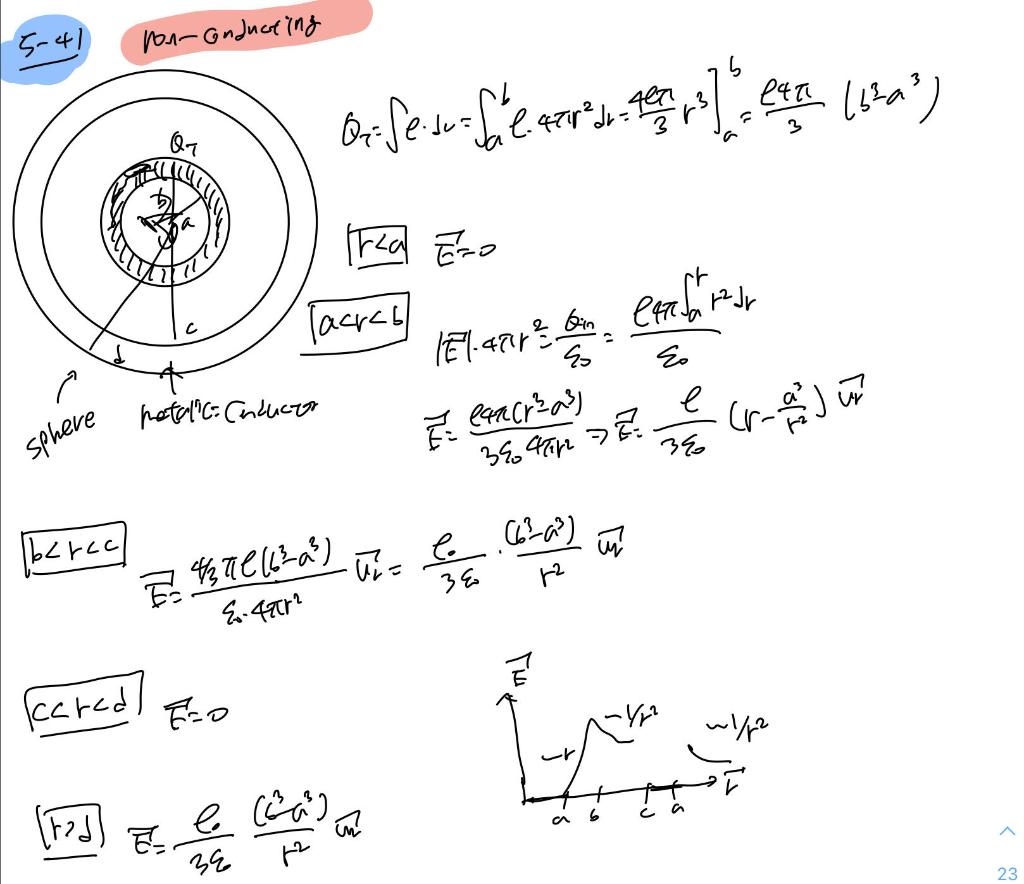 5-41 non-conducting
Q_T = ∫ρ·dv = ∫_a^b ρ·4πr² dr = 4ρπ/3 r³]_a^b = ρ4π/3 (b³-a³)
Q_T
b
a
c
d
sphere
metalic = Conductor
r<a E⃗=0
a<r<b |E⃗|·4πr² = Q_in/ε₀ = ρ4π∫_a^r r² dr/ε₀
E⃗ = ρ4π(r³-a³)/3ε₀4πr² ⇒ E⃗ = ρ/3ε₀ (r - a³/r²) u⃗r
b<r<c E⃗ = 4/3 πρ(b³-a³)/ε₀·4πr² u⃗r = ρ₀/3ε₀ · (b³-a³)/r² u⃗r
c<r<d E⃗=0
r>d E⃗ = ρ₀/3ε₀ (b³-a³)/r² u⃗r
E⃗
~r
~1/r²
~1/r²
r⃗
a b c a
23